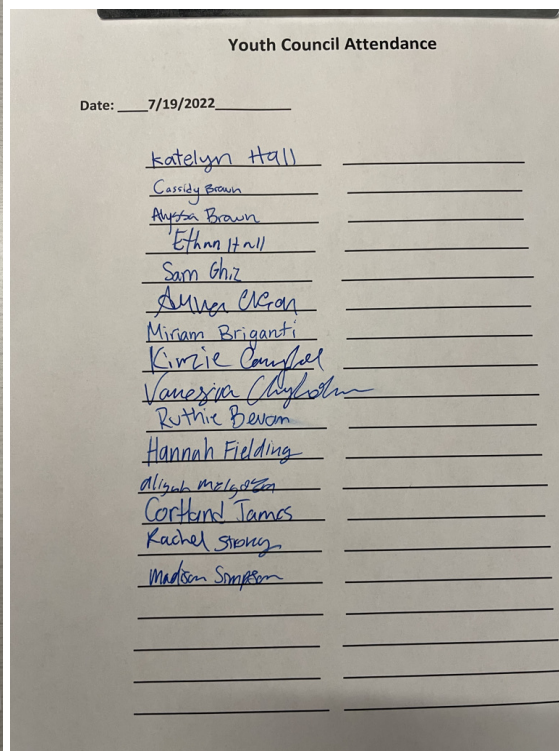 Youth Council Attendance
Date: ____7/19/2022__________
Katelyn Hall
Cassidy Brown
Alyssa Brown
Ethan Hall
Sam Ghiz
Miriam Briganti
Kinzie Campbell
Vanessa
Ruthie Bevan
Hannah Fielding
Cortland James
Rachel Strong
Madison Simpson